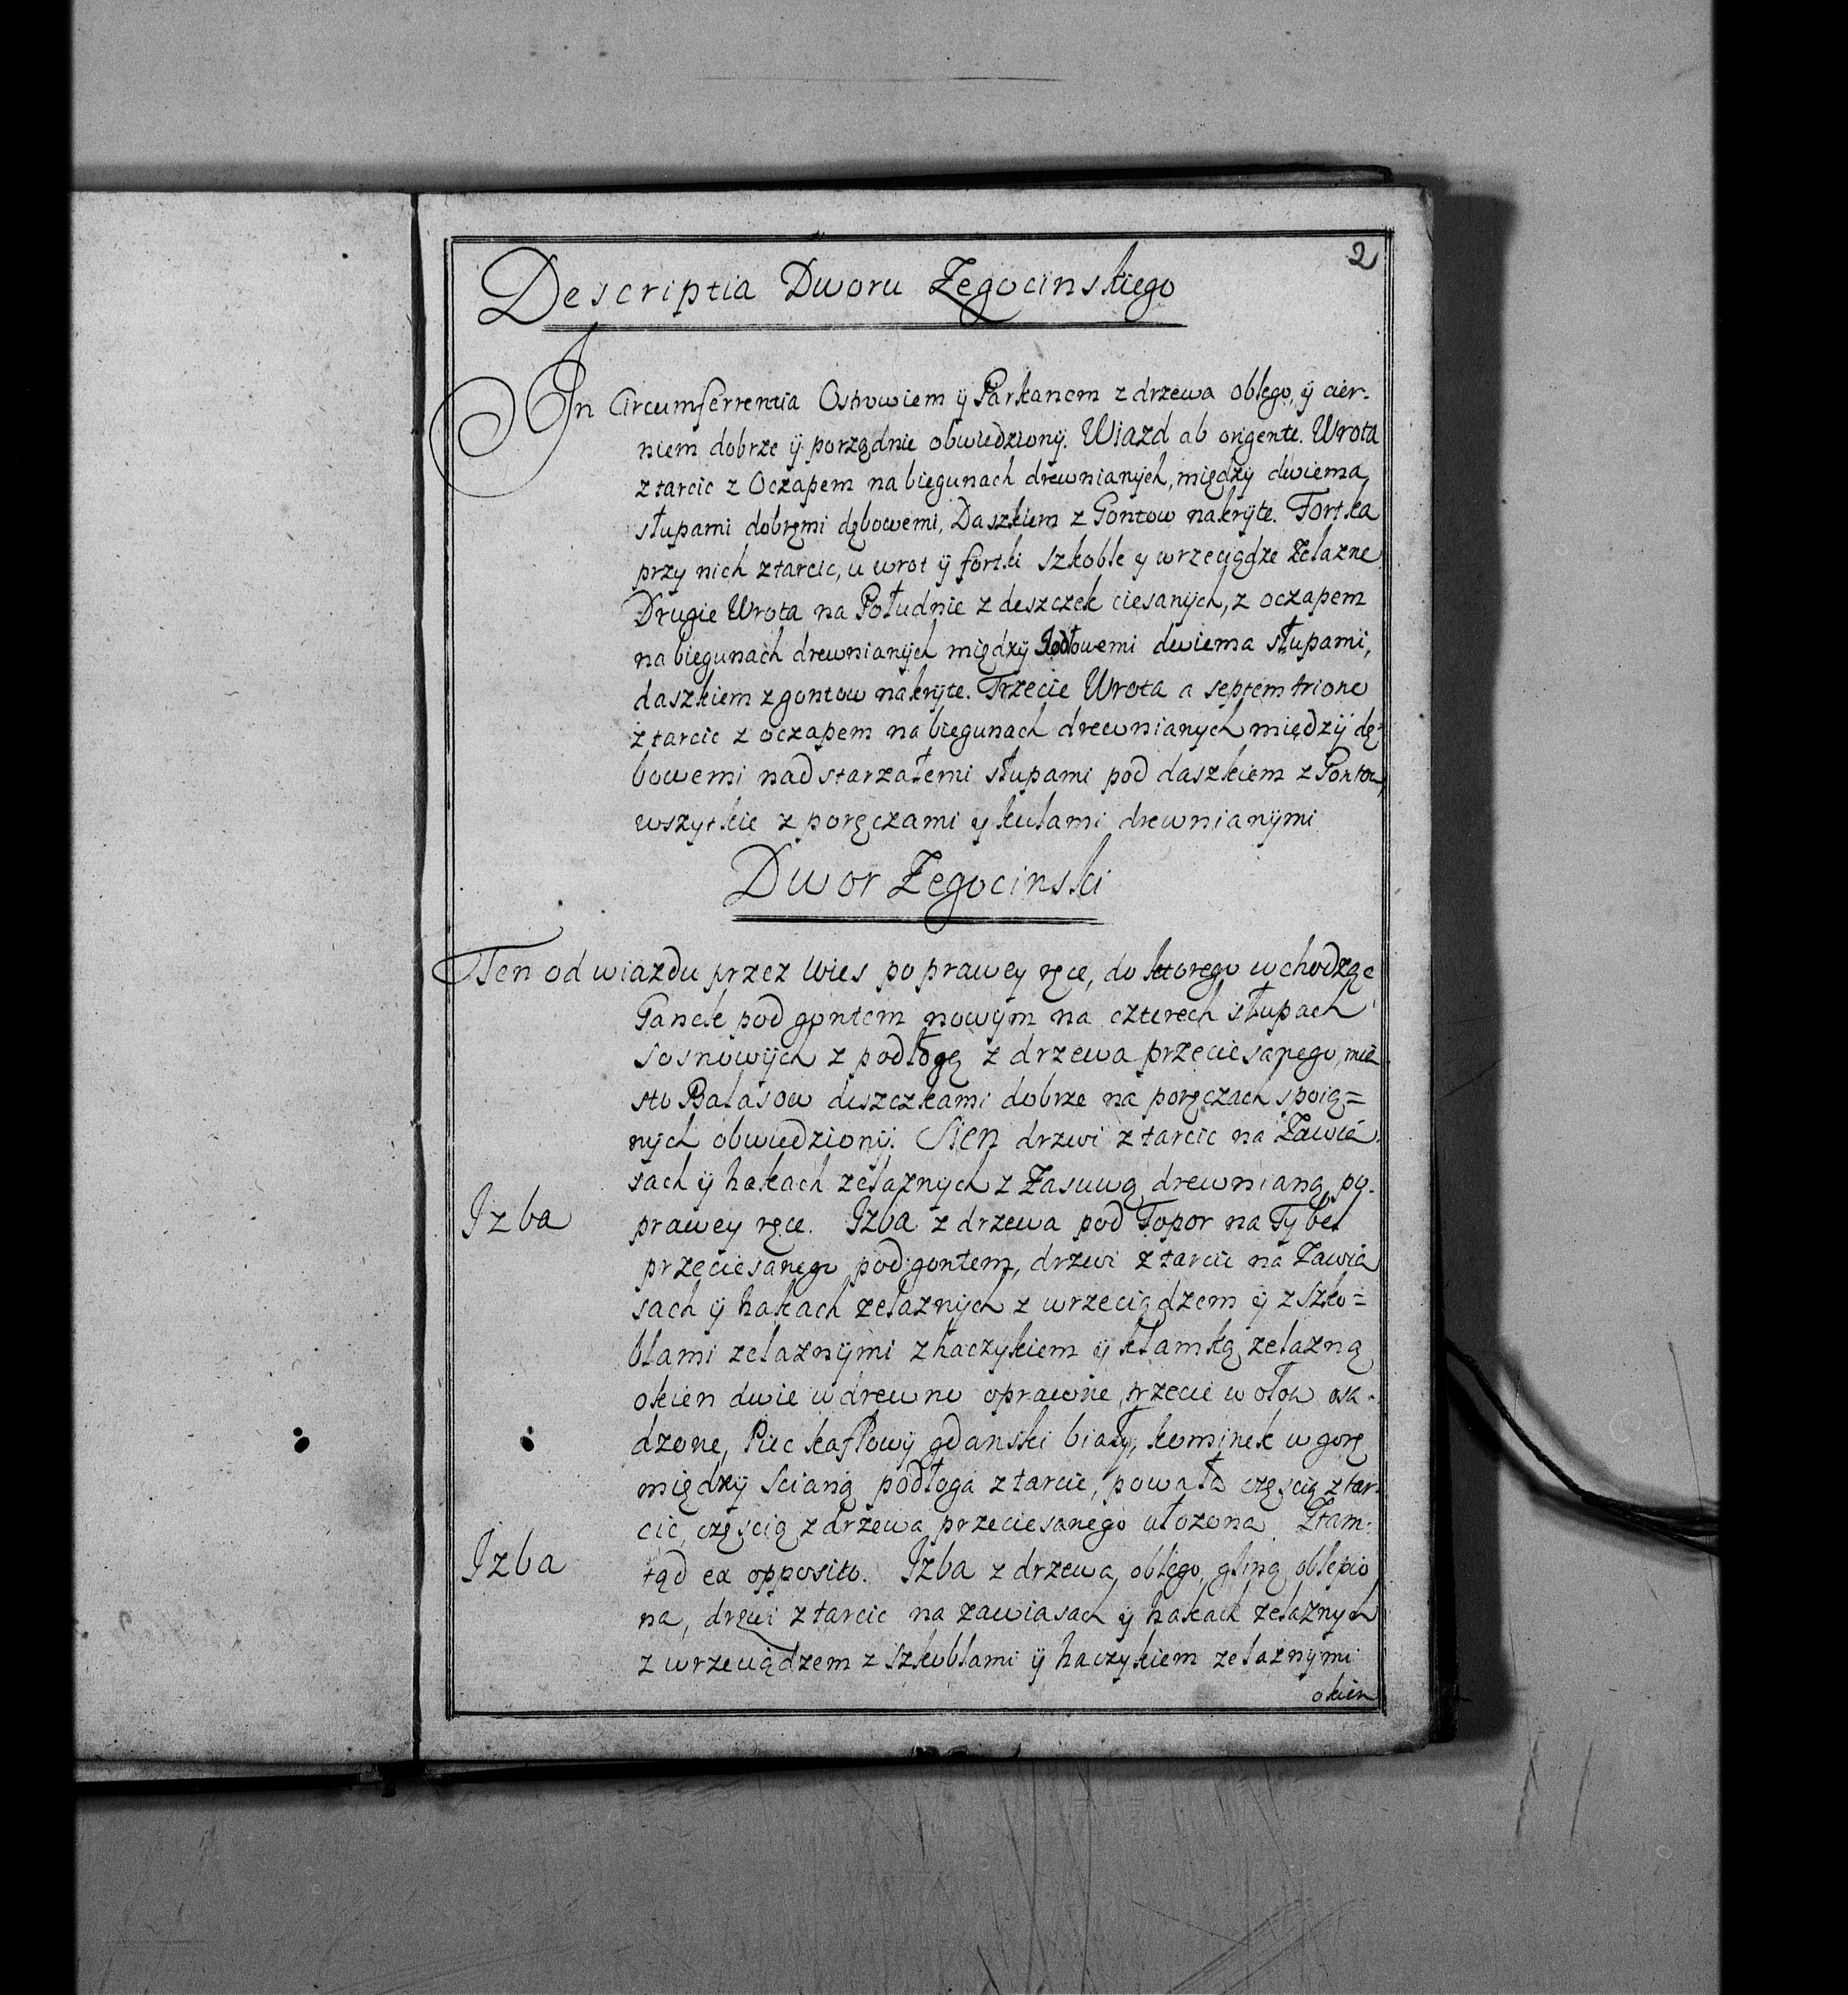 2
Descriptia Dworu Żegocinskiego
In Circumferrentia Ostrowiem ÿ Parkanem z drzewa oblego, ÿ cier-
niem dobrze ÿ porządnie obwiedzionÿ. Wiazd ab origente. Wrota
z tarcic z Oczapem na biegunach drewnianÿch, międzÿ dwiema
słupami dobremi dębowemi, Daszkiem z Gontow nakrÿte. Fortka
przy nich z tarcic, u wrot ÿ fortki szkoble y wrzeciądze Żelazne
Drugie Wrota na Południe z deszczek ciesanÿch, z oczapem
na biegunach drewnianÿch międzÿ Jodłowemi dwiema słupami,
daszkiem z gontow nakrÿte. Trzecie Wrota a septemtrione
z tarcic z oczapem na biegunach drewnianych międzÿ dę-
bowemi nadstarzałemi słupami pod daszkiem z Gontow,
wszytkie z poręczami y kulami drewnianÿmi
Dwor Żegocinski
Ten od wiazdu przez Wies po prawey ręce, do ktorego wchodząc
Ganek pod gontem nowÿm na czterech słupach
sosnowÿch z podłogą z drzewa przeciesanego, mia
sto Balasow deszczkami dobrze na poręczach spoią=
nÿch obwiedzionÿ. Sien drzwi z tarcic na Zawia
sach ÿ hakach zelaznych z Zasuwą drewnianą, po
prawey ręce. Izba z drzewa pod Topor na Tybel
Izba
przeciesanego pod gontem, drzwi z tarcic na Zawia
sach ÿ hakach zelaznÿch z wrzeciądzem ÿ z szko=
blami zelaznÿmi z haczykiem ÿ klamką zelazną
okien dwie w drewno oprawne, trzecie w ołow osa-
dzone, Piec kaflowÿ gdanski biały, kominek w gorę
międzÿ scianą podłoga z tarcic, powała częscią z tar
cic, częscią z drzewa przeciesanego ułozona. Ztam-
tąd ex opposito. Izba z drzewa oblego, gliną oblepio
Izba
na, drzwi z tarcic na zawiasach ÿ hakach zelaznych
z wrzeciądzem z szkoblami ÿ haczykiem zelaznÿmi
okien